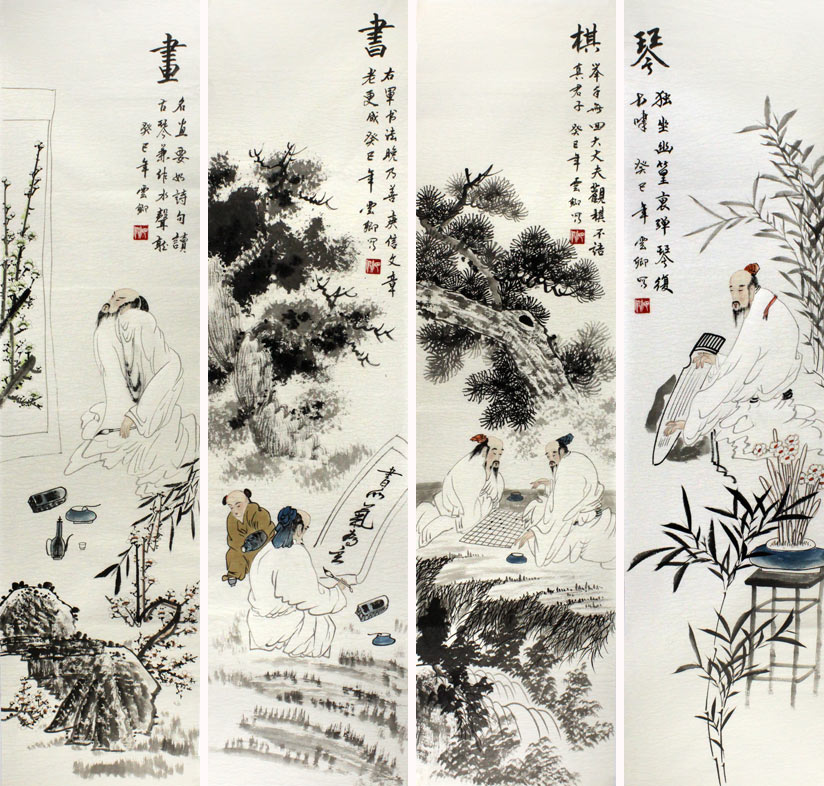 琴
独坐幽篁裏弹琴復
长啸 癸巳年 雲卿写
棋
举手无回大丈夫觀棋不语
真君子 癸巳年 雲卿写
書
右軍书法晚乃善庾信文章
老更成 癸巳年 雲卿写
書以氣为主
畫
名画要如詩句讀
古琴兼作水聲聽
癸巳年 雲卿